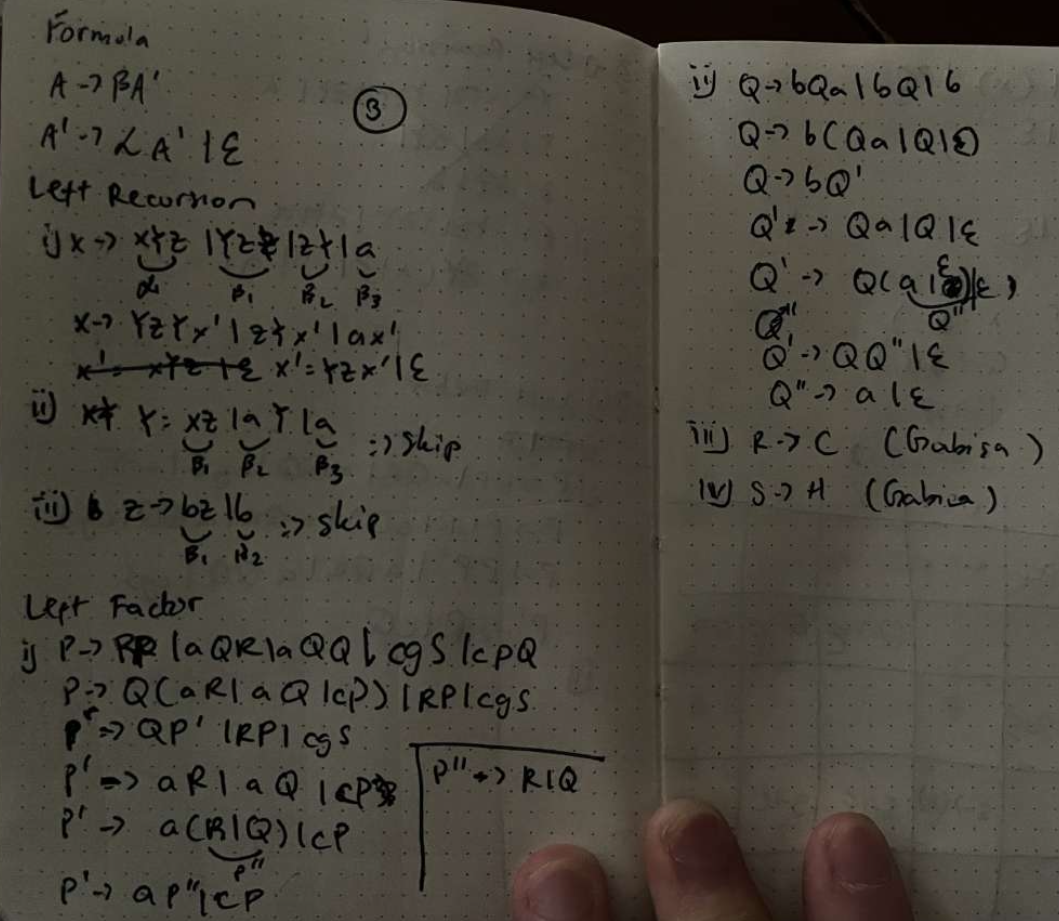 Formula
A -> βA'
A' -> αA' | ε
③
Left Recursion
i) x -> xYz | Yz | zY | a
α1 β1 β2 β3
x -> YzYx' | zYx' | ax'
x' = YZx' | ε
ii) Y = xz | aY | a :> skip
β1 β2 β3
iii) z -> bz | b :> skip
β1 β2
Left Factor
i) P -> RP | aQR | aQQ | cgS | cpQ
P -> Q(aR | aQ | cP) | RP | cgS
P => QP' | RP | cgS
P' => aR | aQ | cP
P' -> a(R | Q) | cP
P"
P' -> aP" | cP
P" -> R | Q
ii) Q -> bQa | bQ | b
Q -> b(Qa | Q | ε)
Q -> bQ'
Q' -> Qa | Q | ε
Q' -> Q(a | ε) | ε
Q"
Q' -> QQ" | ε
Q" -> a | ε
iii) R -> C (Gabisa)
iv) S -> H (Gabisa)